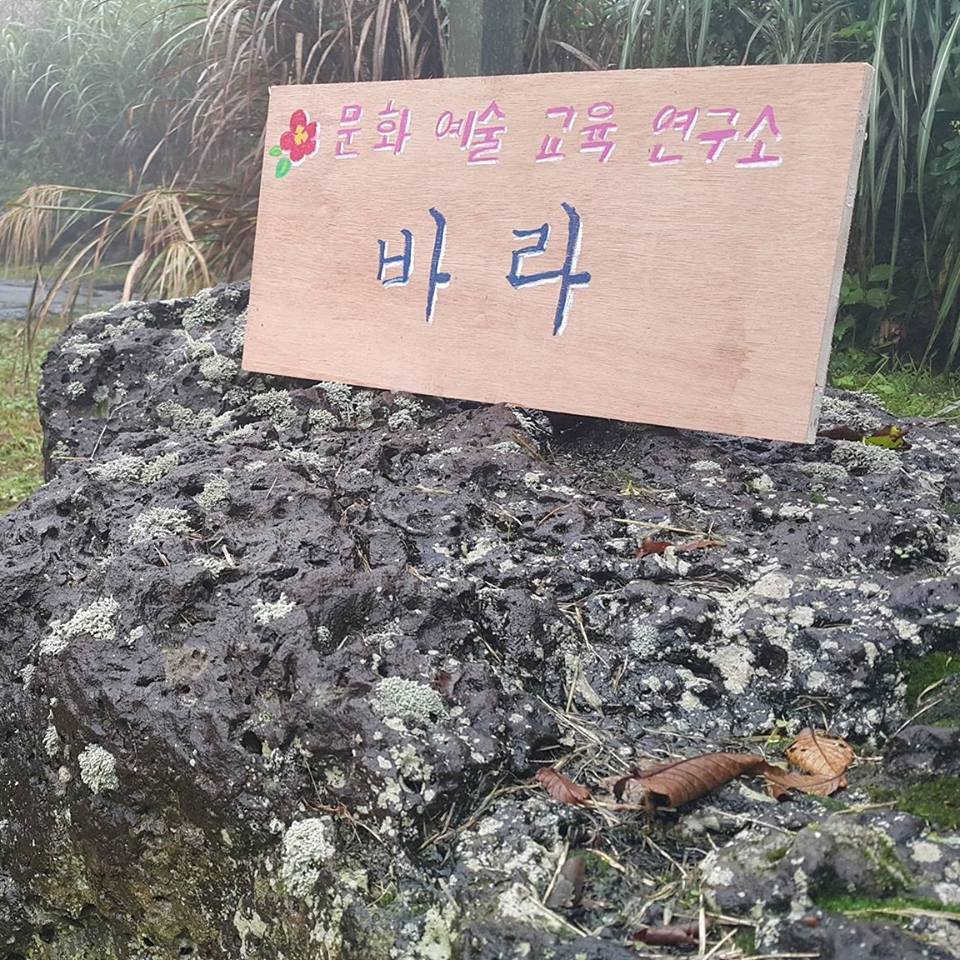 문화 예술 교육 연구소
바라